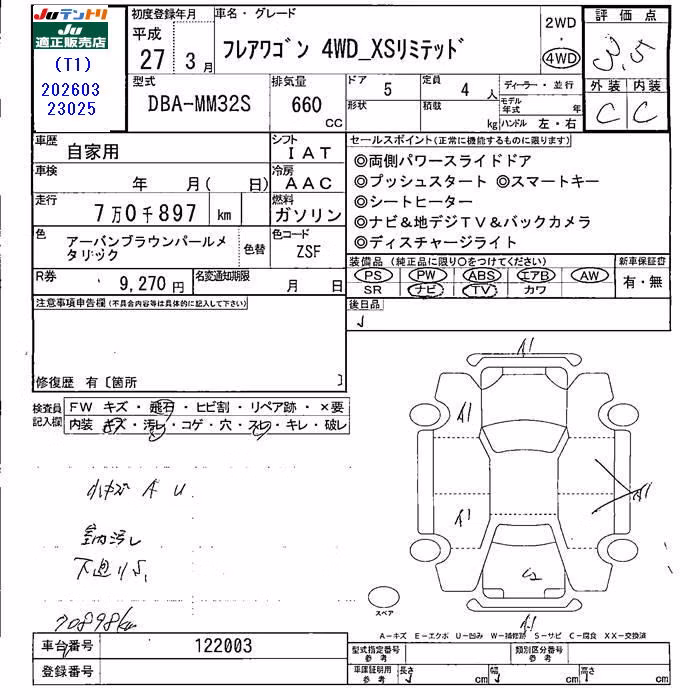 JUテントリ
JU
適正販売店
(T1)
202603
23025
初度登録年月 車名・グレード 評価点
平成
27 3月 フレアワゴン 4WD_XSリミテッド 2WD・4WD 3.5
型式 排気量 ドア 定員 ディーラー・並行 外装 内装
DBA-MM32S 660 CC 5 4 人 C C
形状 積載 kg モデル年式 年
ハンドル 左・右
車歴 自家用 シフト IAT
セールスポイント(正常に機能するものに限ります)
車検 年 月( 日) 冷房 AAC
◎両側パワースライドドア
◎プッシュスタート ◎スマートキー
走行 7万0千897 km 燃料 ガソリン
◎シートヒーター
◎ナビ&地デジTV&バックカメラ
色 アーバンブラウンパールメタリック 色替 色コード ZSF
◎ディスチャージライト
R券 9,270円 名変通知期限 月 日
装備品(純正品に限り○をつけてください) 新車保証書
PS PW ABS エアB AW 有・無
SR ナビ TV カワ
注意事項申告欄(不具合内容等は具体的に記入して下さい)
後日品
修復歴 有〔箇所 〕
検査員記入欄 FW キズ・飛石・ヒビ割・リペア跡・×要
内装 キズ・汚レ・コゲ・穴・スレ・キレ・破レ
A1
A1
A1
A1
A1
小キズ A U
室内汚れ
下廻りS
70898km
スペア
A-キズ E-エクボ U-凹み W-補修跡 S-サビ C-腐食 XX-交換済
車台番号 122003
型式指定番号 参考 類別区分番号 参考
登録番号
車庫証明用 参考 長さ cm 幅 cm 高さ cm